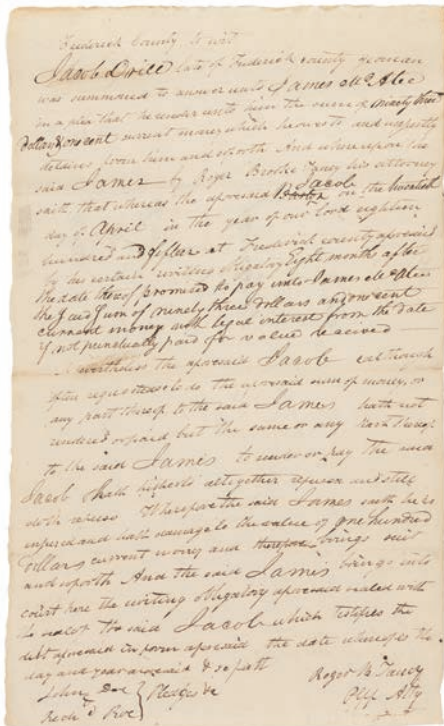 Frederick County to wit
Jacob Drill late of Frederick county yeoman
was summoned to answer unto James McAlee
in a plea that he render unto him the sum of ninety three
dollars & one cent current money which he owes to and unjustly
detains from him and so forth And whereupon the
said James by Roger Brooke Taney his attorney
saith that whereas the aforesaid Jacob on the twentieth
day of April in the year of our Lord eighteen
hundred and at Frederick county aforesaid
by his certain writing obligatory Eight months after
the date thereof promised to pay unto James McAlee
the Just Sum of ninety three dollars and one cent
current money with legal interest from the date
if not punctually paid for value received
Nevertheless the aforesaid Jacob although
often requested so to do the aforesaid sum of money, or
any part thereof to the said James hath not
rendered or paid but the same or any part thereof
to the said James to render or pay the said
Jacob hath hitherto altogether refused and still
doth refuse Wherefore the said James saith he is
injured and hath damage to the value of one hundred
Dollars current money and therefore brings suit
and so forth And the said James brings into
court here the writing obligatory aforesaid sealed with
the seal of the said Jacob which testifies the
debt aforesaid in form aforesaid the date whereof is the
day and year aforesaid &
John Doe
Rich'd Roe } Pledges &c
Roger B. Taney
Atty